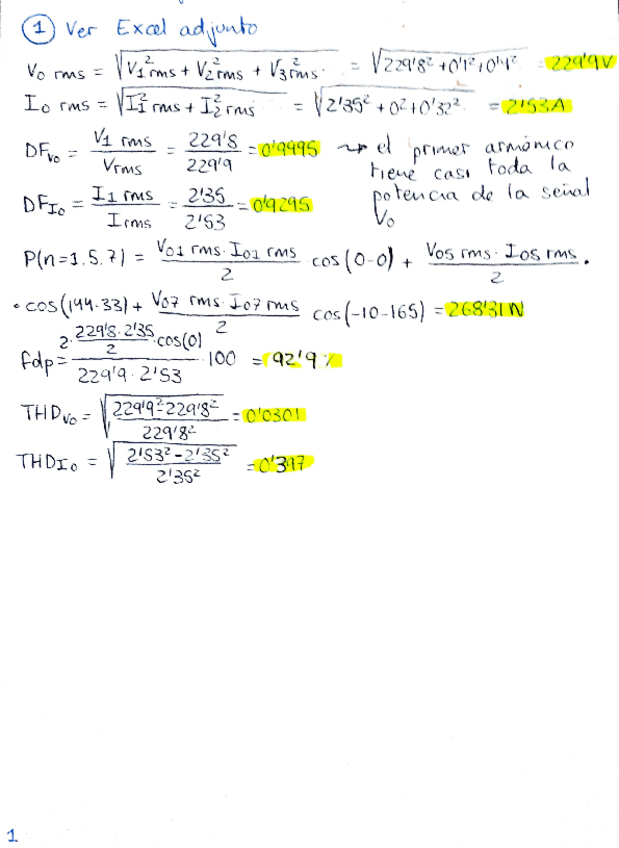 1 Ver Excel adjunto
Vo rms = √(V1²rms + V2²rms + V3²rms) = √(229'8² + 0'1² + 0'4²) = 229'9V
Io rms = √(I1² rms + I2² rms) = √(2'35² + 0² + 0'32²) = 2'53A
DFvo = V1 rms / Vrms = 229'8 / 229'9 = 0'9995 → el primer armónico
tiene casi toda la
potencia de la señal
Vo
DFIo = I1 rms / Irms = 2'35 / 2'53 = 0'9295
P(n=1,5,7) = Vo1 rms · Io1 rms / 2 cos(0-0) + Vo5 rms · Io5 rms / 2 ·
· cos(144-33) + Vo7 rms · Io7 rms / 2 cos(-10-165) = 268'31W
fdp = 2 · 229'8 · 2'35 / 2 · cos(0) / 229'9 · 2'53 · 100 = 92'9 %
THDvo = √(229'9² - 229'8² / 229'8²) = 0'0301
THDIo = √(2'53² - 2'35² / 2'35²) = 0'397
1